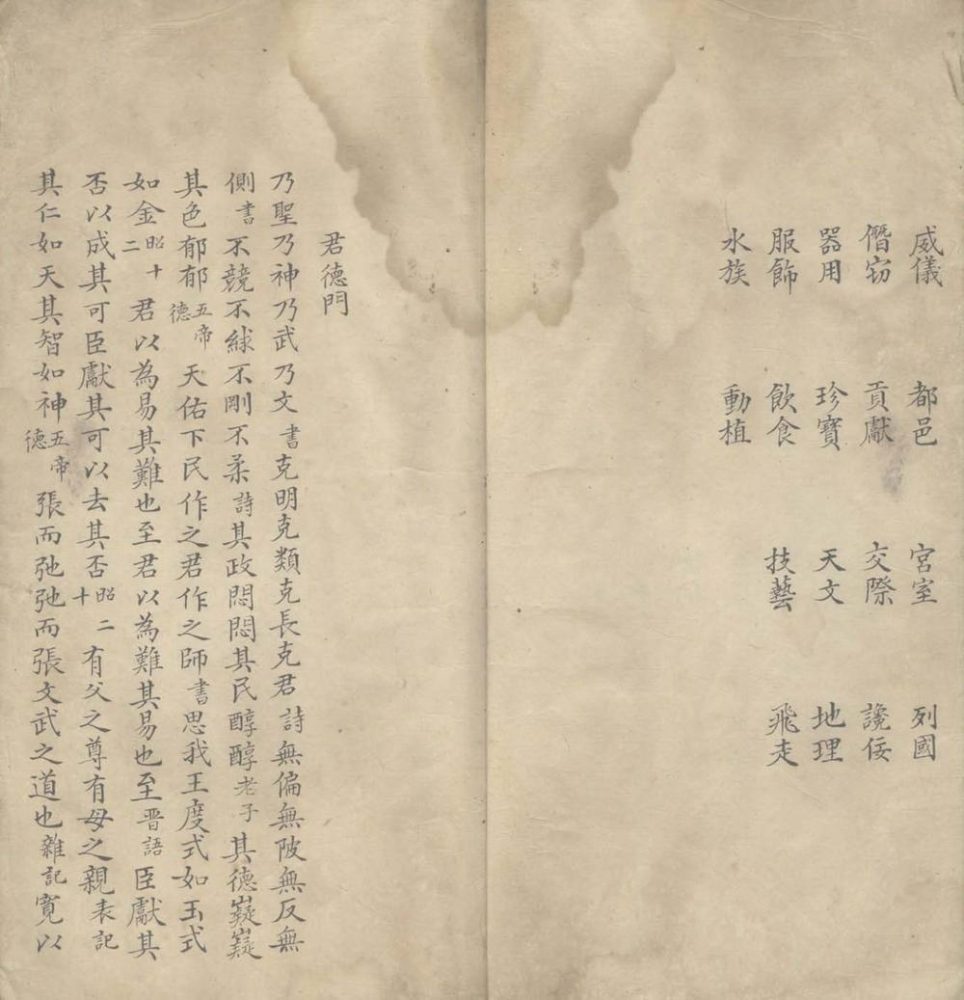 威儀 都邑 宮室 列國
僭窃 貢獻 交際 讒佞
器用 珍寶 天文 地理
服飾 飲食 技藝 飛走
水族 動植
君德門
乃聖乃神乃武乃文書克明克類克長克君詩無偏無陂無反無
側書不競不絿不剛不柔詩其政悶悶其民醇醇老子其德嶷嶷
其色郁郁五帝德天佑下民作之君作之師書思我王度式如玉式
如金昭十二君以為易其難也至君以為難其易也至晋語臣獻其
否以成其可臣獻其可以去其否昭二十有父之尊有母之親表記
其仁如天其智如神五帝德張而弛弛而張文武之道也雜記寬以